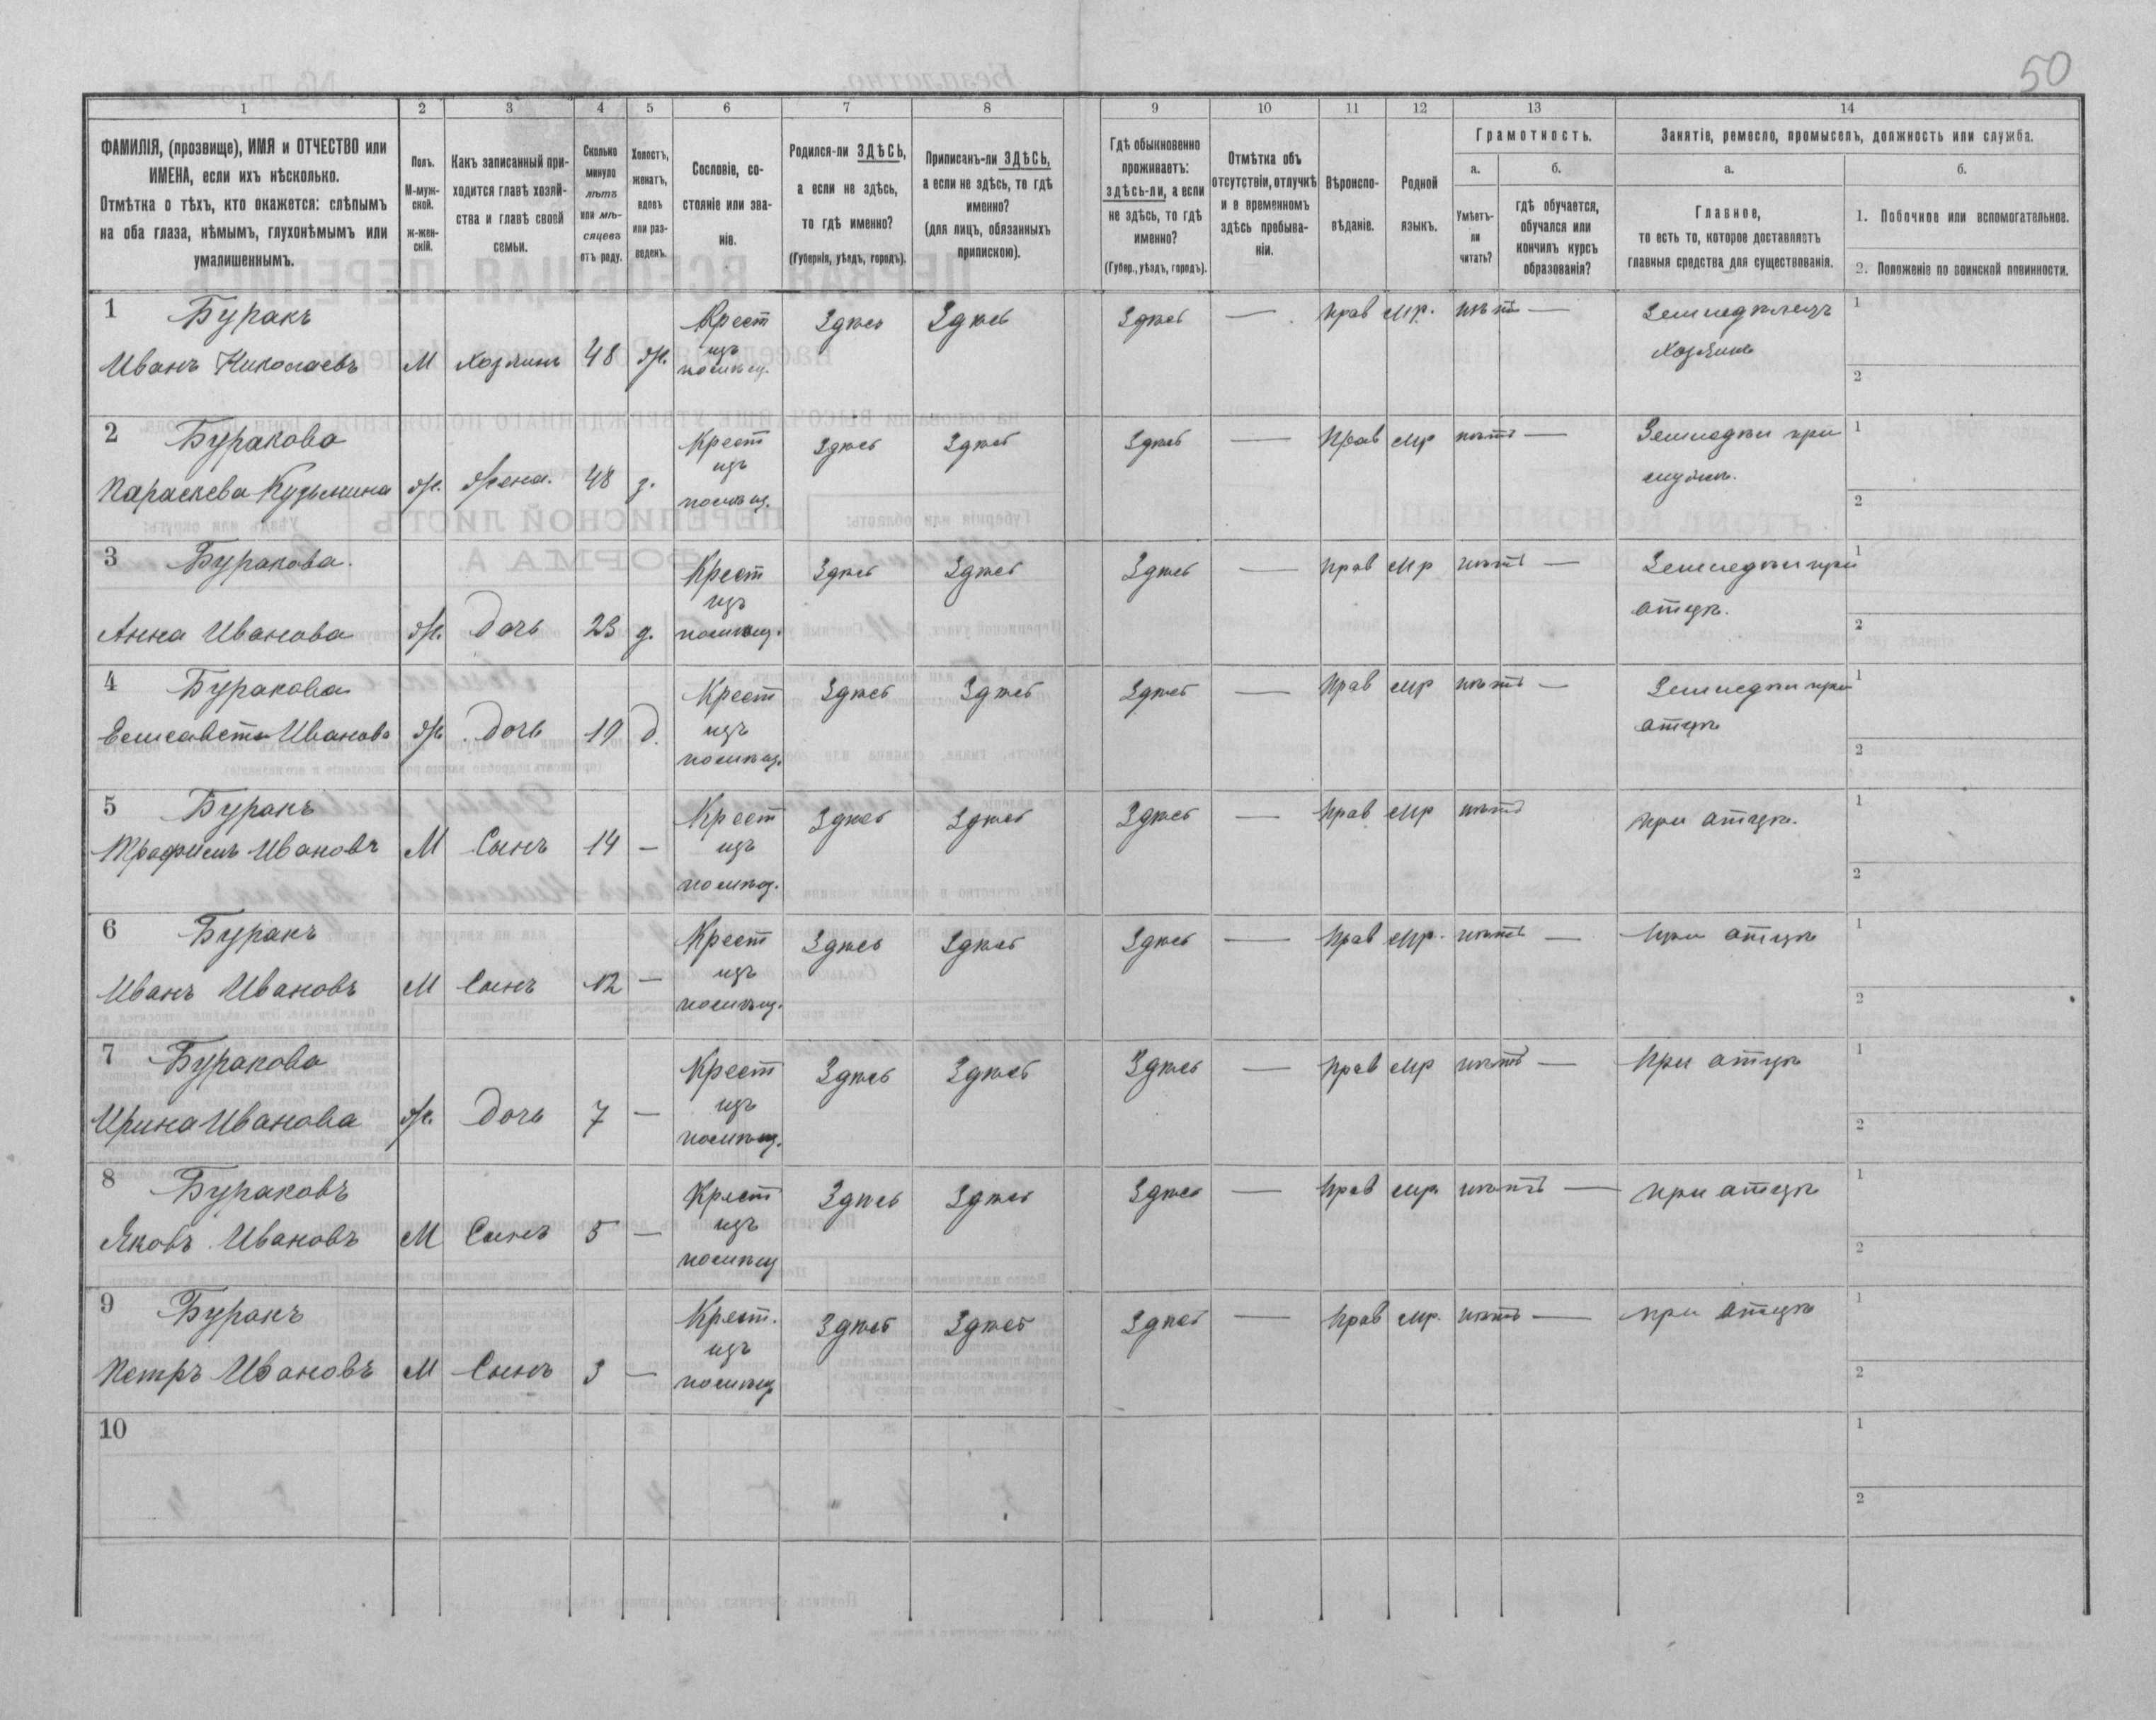 50
1 2 3 4 5 6 7 8 9 10 11 12 13 14
ФАМИЛІЯ, (прозвище), ИМЯ и ОТЧЕСТВО или
ИМЕНА, если ихъ нѣсколько.
Отмѣтка о тѣхъ, кто окажется: слѣпымъ
на оба глаза, нѣмымъ, глухонѣмымъ или
умалишеннымъ.
Полъ.
М-муж-
ской.
ж-жен-
скій.
Какъ записанный при-
ходится главѣ хозяй-
ства и главѣ своей
семьи.
Сколько
минуло
лѣтъ
или мѣ-
сяцевъ
отъ роду.
Холостъ,
женатъ,
вдовъ
или раз-
веденъ.
Сословіе, со-
стояніе или зва-
ніе.
Родился-ли ЗДѢСЬ,
а если не здѣсь,
то гдѣ именно?
(Губернія, уѣздъ, городъ).
Приписанъ-ли ЗДѢСЬ,
а если не здѣсь, то гдѣ
именно?
(для лицъ, обязанныхъ
припискою).
Гдѣ обыкновенно
проживаетъ:
здѣсь-ли, а если
не здѣсь, то гдѣ
именно?
(Губер., уѣздъ, городъ).
Отмѣтка объ
отсутствіи, отлучкѣ
и в временномъ
здѣсь пребыва-
ніи.
Вѣроиспо-
вѣданіе.
Родной
языкъ.
Грамотность.
а.
Умѣетъ-
ли
читать?
б.
гдѣ обучается,
обучался или
кончилъ курсъ
образованія?
Занятіе, ремесло, промыселъ, должность или служба.
а.
Главное,
то есть то, которое доставляетъ
главныя средства для существованія.
б.
1. Побочное или вспомогательное.
2. Положеніе по воинской повинности.
1 Буракъ Крест Здѣсь Здѣсь Здѣсь — Прав мр. нѣтъ — Земледѣлецъ 1
Иванъ Николаевъ М Хозяинъ 48 ж. изъ помѣщ. хозяинъ 2
2 Буракова Крест Здѣсь Здѣсь Здѣсь — Прав мр нѣтъ — Земледѣл при 1
Параскева Кузьмина ж. жена. 48 з. изъ помѣщ. мужѣ. 2
3 Буракова. Крест Здѣсь Здѣсь Здѣсь — Прав мр нѣтъ — Земледѣл при 1
Анна Иванова ж. дочь 23 д. изъ помѣщ. атцѣ. 2
4 Буракова Крест Здѣсь Здѣсь Здѣсь — Прав мр нѣтъ — Земледѣл при 1
Елисавета Иванова ж. дочь 19 д. изъ помѣщ. атцѣ 2
5 Буракъ Крест Здѣсь Здѣсь Здѣсь — Прав мр нѣтъ при атцѣ. 1
Трафимъ Ивановъ М Сынъ 14 — изъ помѣщ. 2
6 Буракъ Крест Здѣсь Здѣсь Здѣсь — Прав мр. нѣтъ — При атцѣ 1
Иванъ Ивановъ М Сынъ 12 — изъ помѣщ. 2
7 Буракова Крест Здѣсь Здѣсь Здѣсь — Прав мр нѣтъ — При атцѣ 1
Ирина Иванова ж. дочь 7 — изъ помѣщ. 2
8 Бураковъ Крест Здѣсь Здѣсь Здѣсь — Прав мр. нѣтъ — при атцѣ 1
Яковъ Ивановъ М Сынъ 5 — изъ помѣщ 2
9 Буракъ Крест. Здѣсь Здѣсь Здѣсь — Прав мр. нѣтъ — при атцѣ 1
Петръ Ивановъ М Сынъ 3 — изъ помѣщ 2
10 1
2